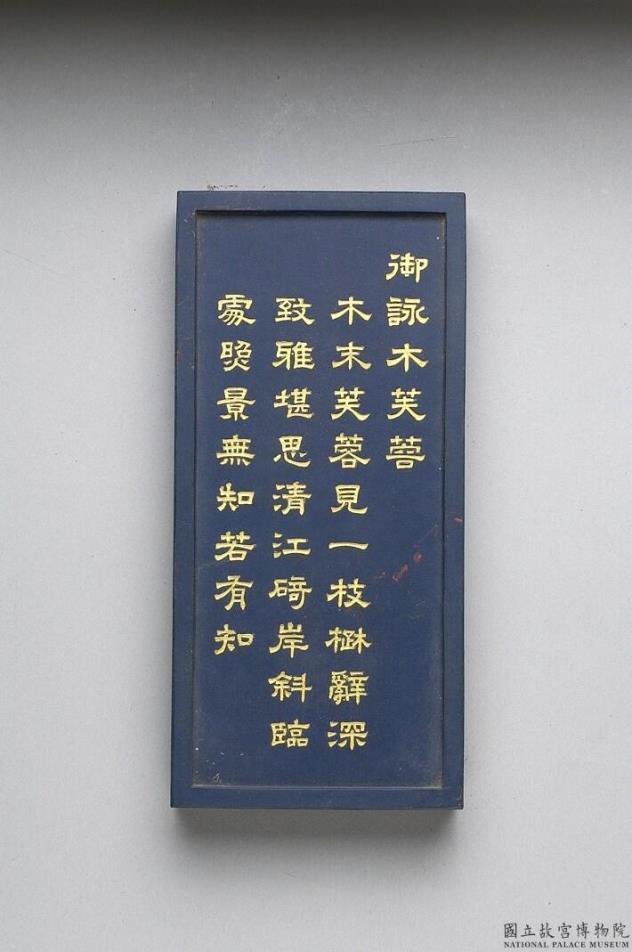 御詠木芙蓉
木末芙蓉見一枝楚辭深
致雅堪思清江碕岸斜臨
處照景無知若有知
國立故宮博物院
NATIONAL PALACE MUSEUM